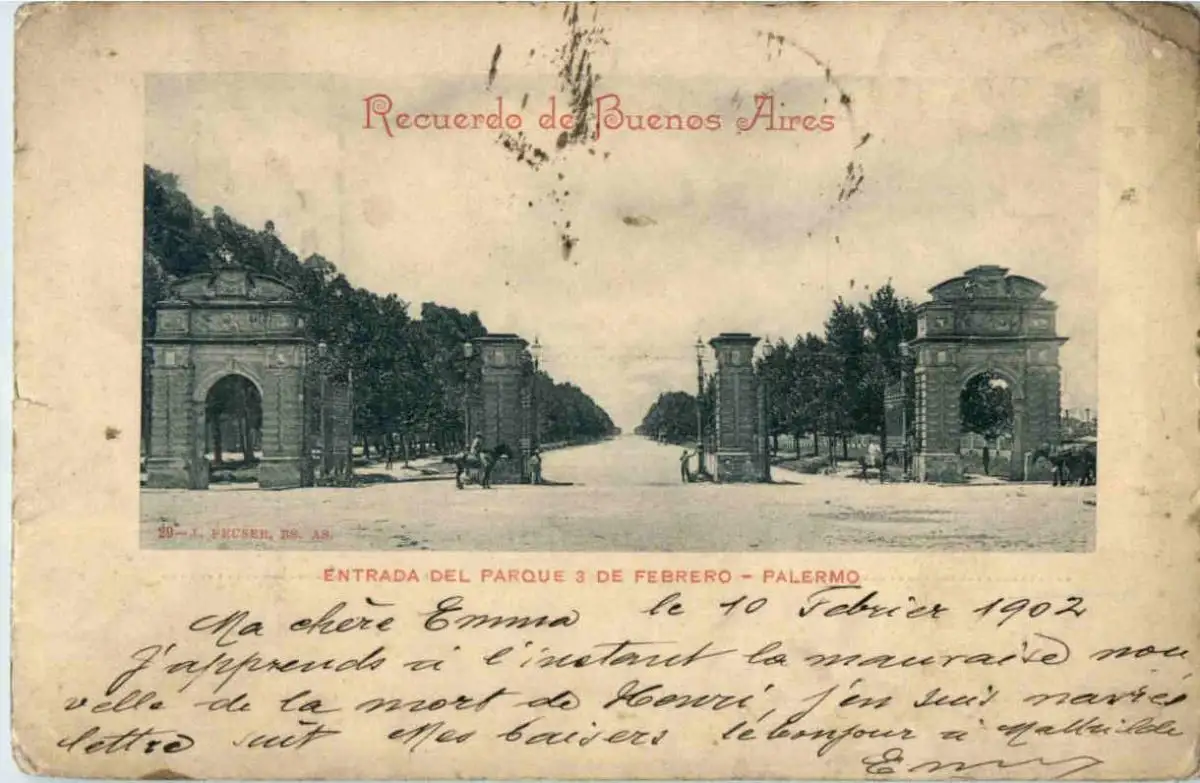 Recuerdo de Buenos Aires
29—J. PEUSER, BS. AS.
ENTRADA DEL PARQUE 3 DE FEBRERO - PALERMO
Ma chère Emma le 10 Febrier 1902
J'apprends à l'instant la mauvaise nou
velle de la mort de Henri, j'en suis navrée
lettre suit Mes baisers le bonjour à Mathilde